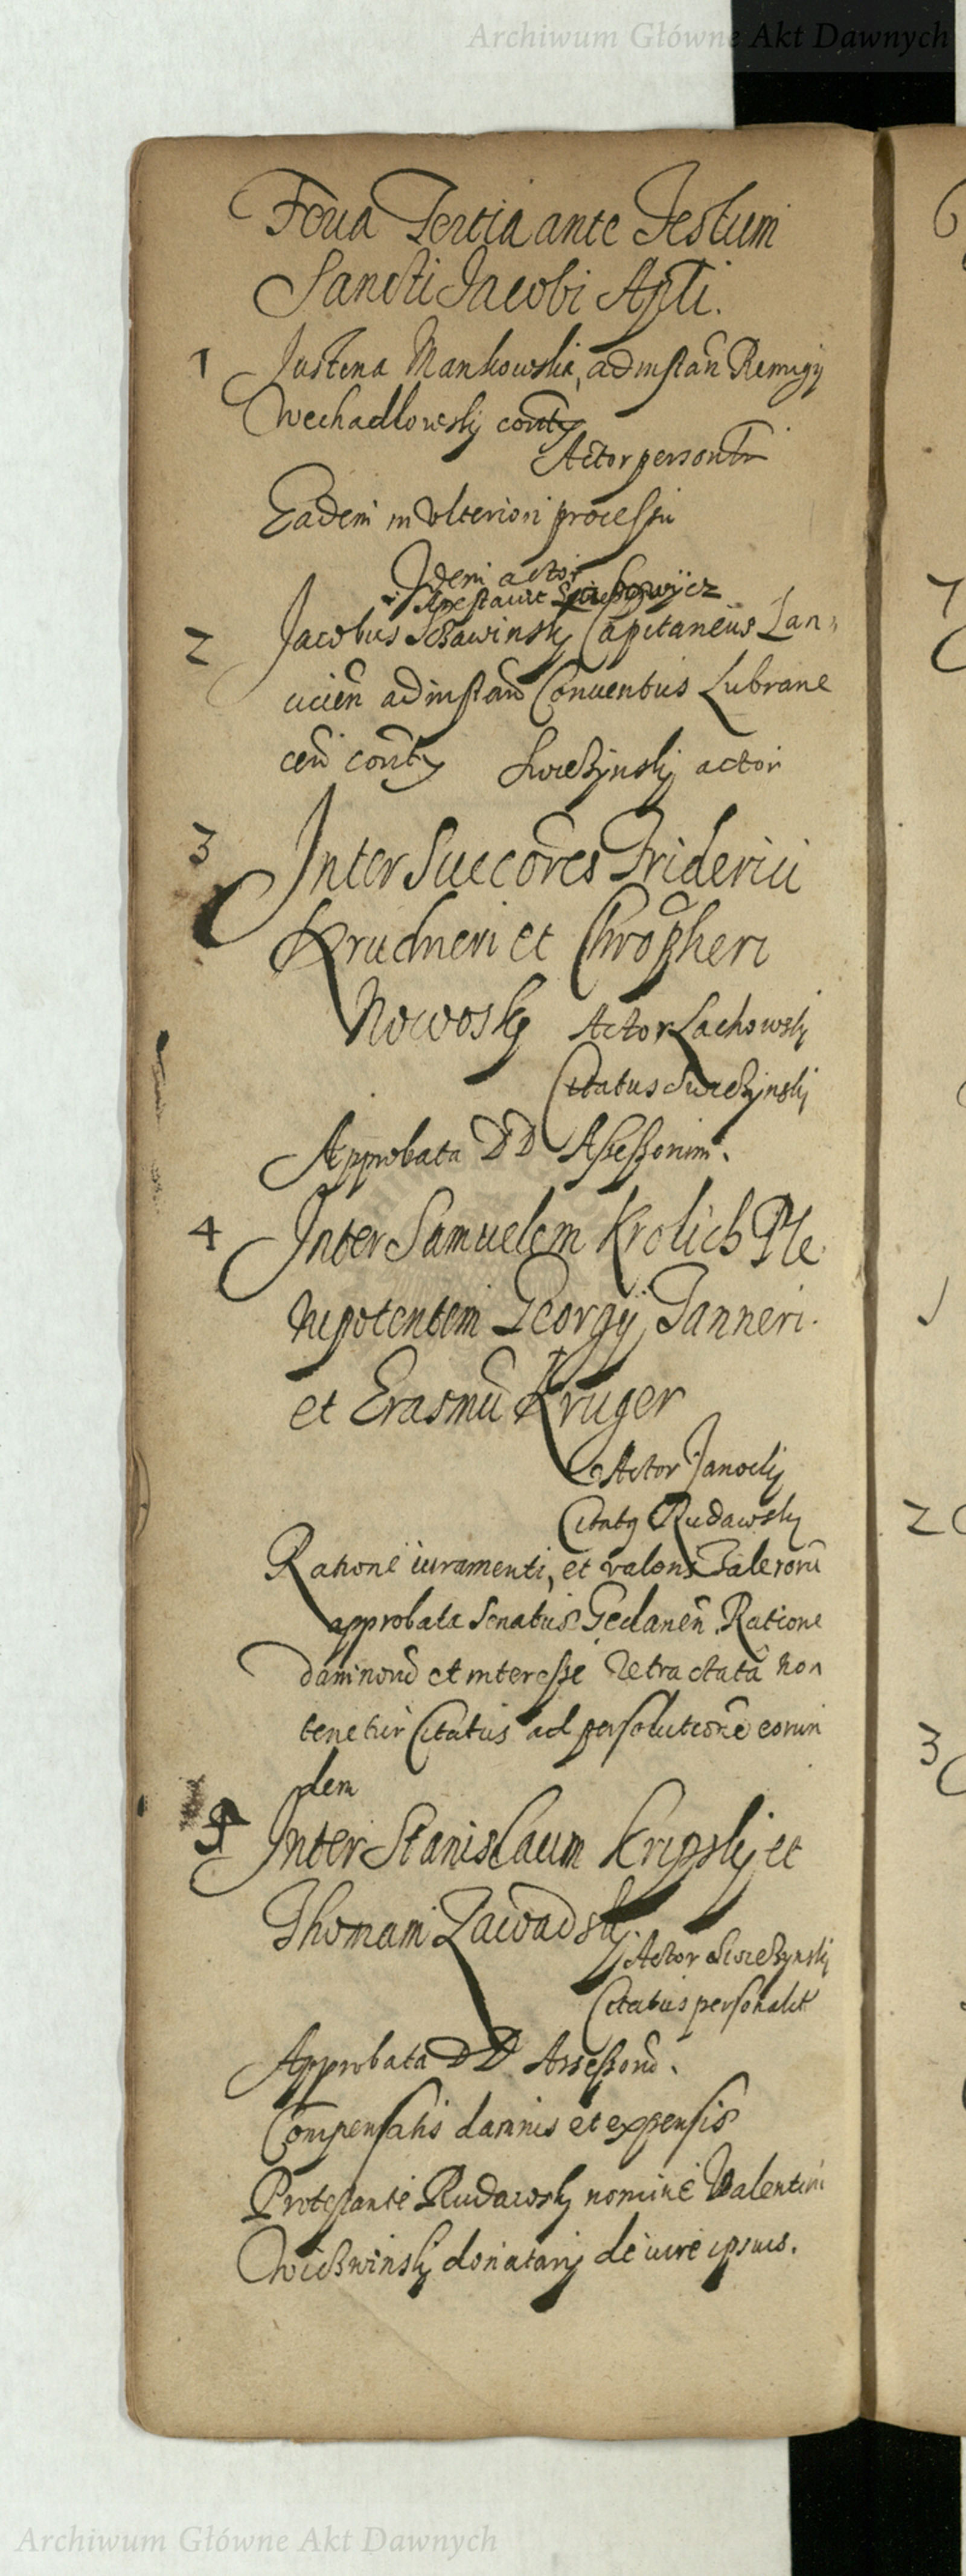 Archiwum Główne Akt Dawnych
Feria Tertia ante Festum
Sancti Jacobi Apli.
1 Justena Mankowska, ad instan̄ Remigij
Wechadlowskj contx
Actor personlr
Eadem in Ulteriori processu
Idem actor
Arestavit
2 Jacobus Sczawinskj Capitaneus Lan,
cicien̄ ad instan̄ Conventus Lubrane
cen̄ contx Swieszynskj actor
3 Inter Succōres Friderici
Krudneri et Chropheri
Nowoskj Actor Lachowskj
Citatus Swieszynskj
Approbata DD Assessorum.
4 Inter Samuelem Krolich Ple
nipotentem Georgij Tanneri.
et Erasmū Kruger
Actor Janockj
Citatg Rudawskj
Ratione iuramenti, et valoris Talerorū
approbata Senatus Gedanen̄. Ratione
damnorū et interesse retractata non
tenetur Citatus ad persolutionē eorun
dem
5 Inter Stanislaum Kripskj et
Thomam Zawadskj
Actor Swieszynskj
Citatus personalit
Approbata DD Assessorū.
Compensatis damnis et expensis
Protestante Rudawskj nomine Valentini
donatarij de iure ipsius.
6
7
2
3
Archiwum Główne Akt Dawnych